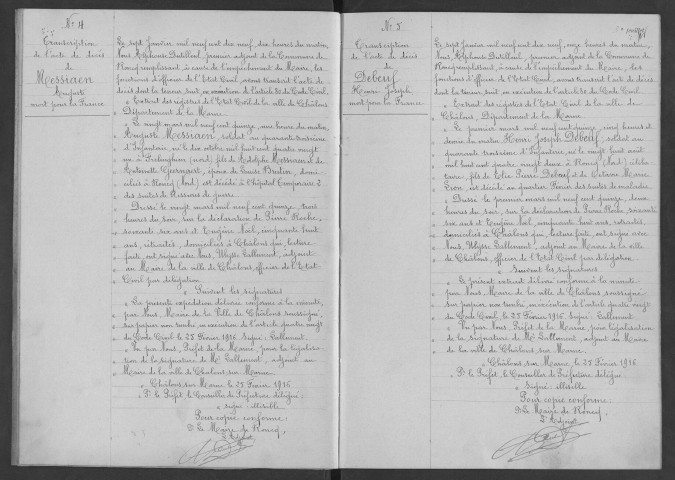 N° 4
Transcription
de l'acte de décès
de
Messiaen
Auguste
mort pour la France
Le sept Janvier mil neuf cent neuf, dix heures du matin,
Nous Alphonse Dutilleul, premier adjoint de la Commune de
Roncq remplissant, à cause de l'empêchement du Maire, les
fonctions d'officier de l'Etat Civil, avons transcrit l'acte de
décès dont la teneur suit, en exécution de l'article 80 du Code Civil.
Extrait des registres de l'Etat Civil de la ville de Châlons
Département de la Marne.
Le vingt mars mil neuf cent quinze, une heure du matin,
Auguste Messiaen, soldat au quarante troisième
d'Infanterie, né le dix octobre mil huit cent quatre vingt
un à Frelinghien (nord) fils de Adolphe Messiaen et de
Antoinette Guernaert, époux de Fannie Bredin, domi-
cilié à Roncq (Nord) est décédé à l'hôpital temporaire 2
des suites de blessures de guerre.
Dressé le vingt mars mil neuf cent quinze, trois
heures du soir, sur la déclaration de Pierre Roche,
soixante six ans et Eugène Noel, cinquante huit
ans, retraités, domiciliés à Châlons qui, lecture
faite, ont signé avec Nous, Ulysse Gallemant, adjoint
au Maire de la ville de Châlons, officier de l'Etat
Civil par délégation.
Suivent les signatures
La présente expédition délivrée conforme à la minute,
par Nous, Maire de la Ville de Châlons soussigné,
sur papier non timbré, en exécution de l'article quatre vingt
du Code Civil le 25 Février 1916 Signé: Gallemant.
Vu par Nous, Préfet de la Marne, pour la légalisa-
tion de la signature de Mr Gallemant, adjoint au
Maire de la ville de Châlons sur Marne.
Châlons sur Marne le 27 Février 1916
Pr le Préfet, le Conseiller de Préfecture délégué
signé: illisible
Pour copie conforme:
Le Maire de Roncq,
N° 5
Transcription
de l'acte de décès
de
Debeuf
Henri Joseph
mort pour la France
Le sept Janvier mil neuf cent neuf, onze heures du matin,
Nous Alphonse Dutilleul, premier adjoint de la Commune de
Roncq remplissant, à cause de l'empêchement du Maire, les
fonctions d'officier de l'Etat Civil, avons transcrit l'acte de décès
dont la teneur suit, en exécution de l'article 80 du Code Civil.
Extrait des registres de l'Etat Civil de la ville de
Châlons, Département de la Marne.
Le premier mars mil neuf cent quinze, cinq heures et
demie du matin, Henri Joseph Debeuf, soldat au
quarante troisième d'Infanterie, né le vingt huit août
mil huit cent quatre vingt deux à Roncq (Nord) céliba-
taire, fils de Elie Pierre Debeuf et de Victorine Marie
Lion est décédé au Quartier Forier des suites de maladie.
Dressé le premier mars mil neuf cent quinze, deux
heures du soir, sur la déclaration de Pierre Roche, soixante
six ans et Eugène Noel, cinquante huit ans, retraités,
domiciliés à Châlons qui, lecture faite, ont signé avec
Nous, Ulysse Gallemant, adjoint au Maire de la ville
de Châlons, officier de l'Etat Civil par délégation.
Suivent les signatures
Le présent extrait délivré conforme à la minute
par Nous, Maire de la Ville de Châlons soussigné
sur papier non timbré, en exécution de l'article quatre vingt
du Code Civil, le 25 Février 1916. Signé: Gallemant.
Vu par Nous, Préfet de la Marne, pour légalisation
de la signature de Mr Gallemant, adjoint au Maire
de la ville de Châlons sur Marne.
Châlons sur Marne, le 27 Février 1916
Pr le Préfet, le Conseiller de Préfecture délégué
Signé: illisible
Pour copie conforme:
Le Maire de Roncq,